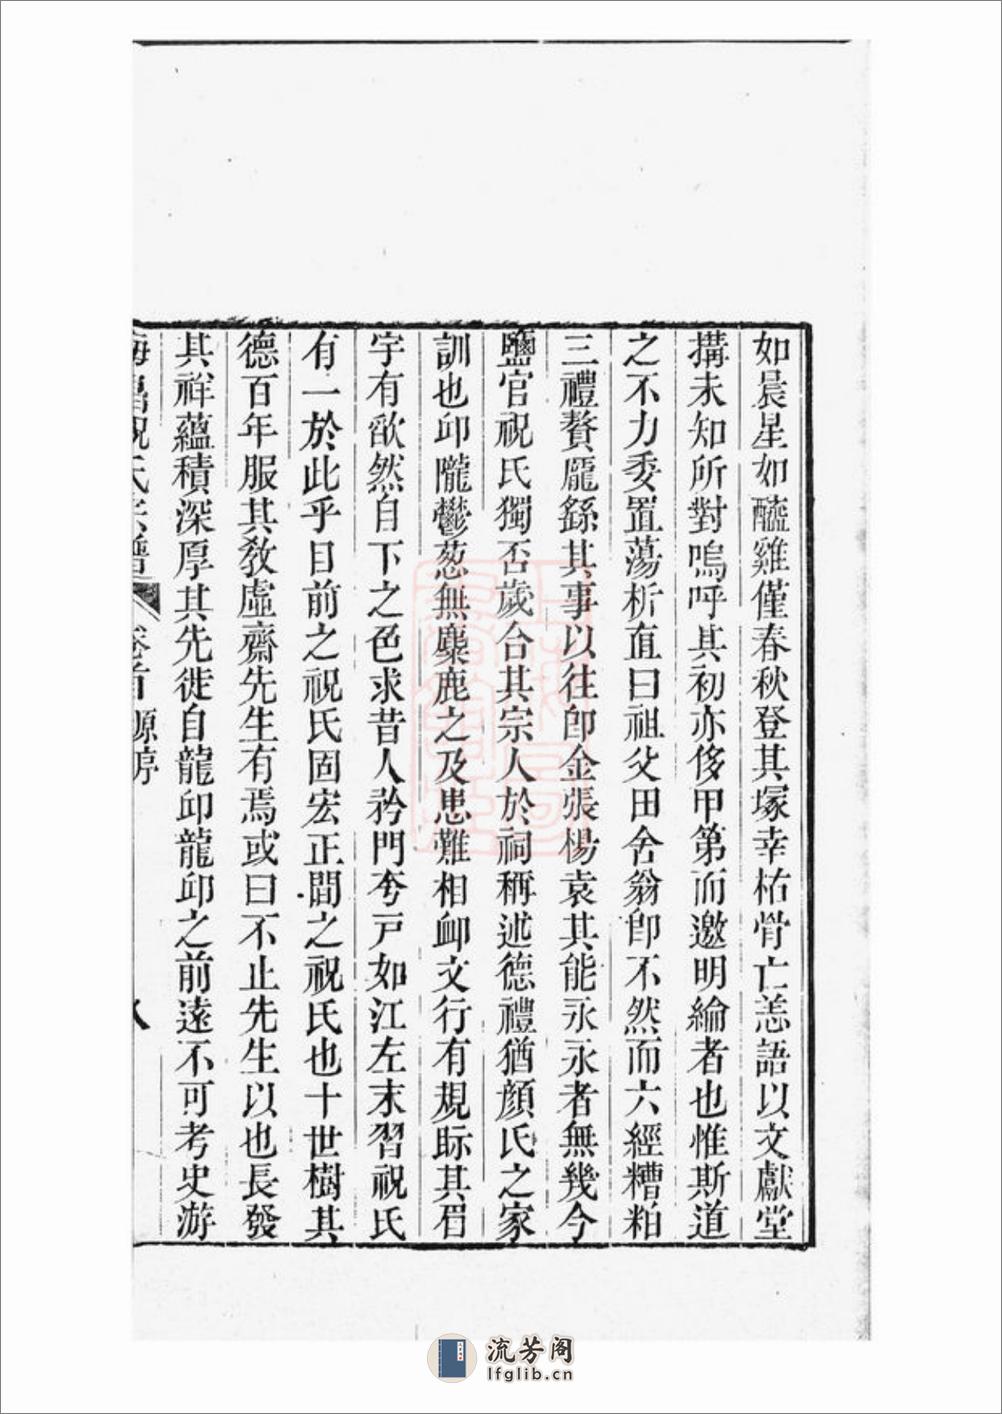 如晨星如醯雞僅春秋登其塚幸枯骨亡恙語以文獻堂
搆未知所對嗚呼其初亦侈甲第而邀明綸者也惟斯道
之不力委置蕩析直曰祖父田舍翁卽不然而六經糟粕
三禮贅厖繇其事以往卽金張楊袁其能永永者無幾今
鹽官祝氏獨否歲合其宗人於祠稱述德禮猶顔氏之家
訓也卭隴鬱葱無麋鹿之及患難相卹文行有規眎其眉
宇有欿然自下之色求昔人矜門夸戸如江左末習祝氏
有一於此乎目前之祝氏固宏正間之祝氏也十世樹其
德百年服其敎虛齋先生有焉或曰不止先生以也長發
其祥蘊積深厚其先徙自龍卭龍卭之前遠不可考史游
海昌祝氏宗譜 卷首 源序 八
流芳阁
lfglib.cn